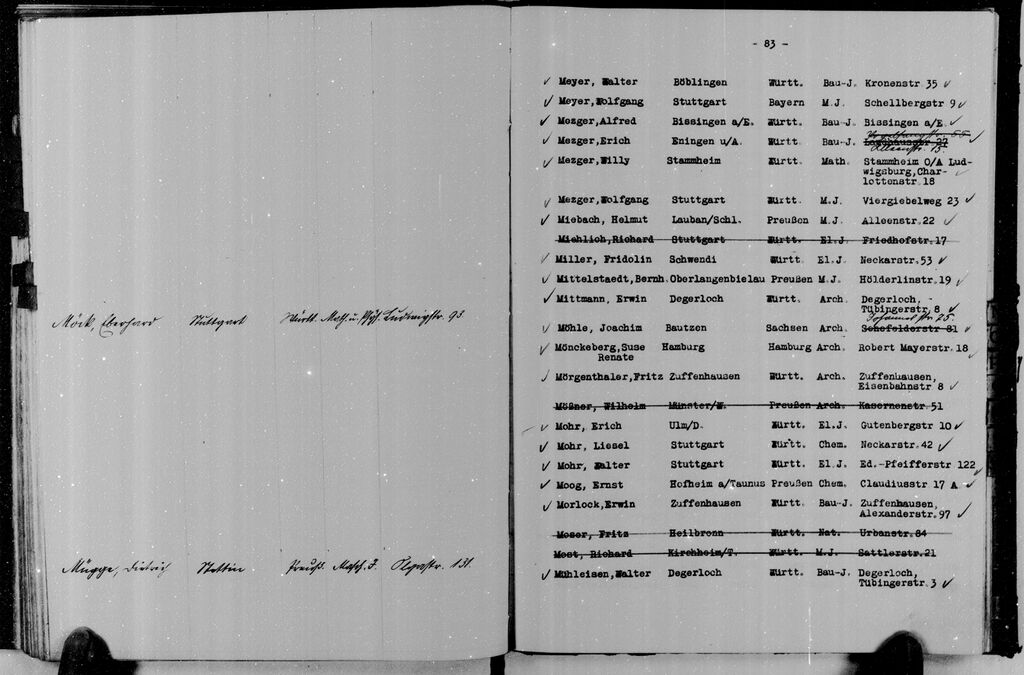 Möck, Eberhard Stuttgart Württ. Math. u. Phys. Ludwigstr. 93
Mügge, Dietrich Stettin Preuß. Masch. J. Olgastr. 131.
- 83 -
✓ Meyer, Walter Böblingen Württ. Bau-J. Kronenstr 35 ✓
✓ Meyer,Wolfgang Stuttgart Bayern M.J. Schellbergstr 9 ✓
✓ Mezger,Alfred Bissingen a/E. Württ. Bau-J. Bissingen a/E. ✓
✓ Mezger,Erich Eningen u/A. Württ. Bau-J. 27 ✓
15
✓ Mezger,Willy Stammheim Württ. Math. Stammheim O/A Lud-
wigsburg,Char- ✓
lottenstr.18
✓ Mezger,Wolfgang Stuttgart Württ. M.J. Viergiebelweg 23 ✓
✓ Miebach, Helmut Lauban/Schl. Preußen M.J. Alleenstr.22 ✓
Miehlich,Richard Stuttgart Württ. El.J. Friedhofstr.17
✓ Miller, Fridolin Schwendi Württ. El.J. Neckarstr.53 ✓
✓ Mittelstaedt,Bernh. Oberlangenbielau Preußen M.J. Hölderlinstr.19 ✓
✓ Mittmann, Erwin Degerloch Württ. Arch. Degerloch,
Tübingerstr.8 ✓
Johannesstr. 25
✓ Möhle, Joachim Bautzen Sachsen Arch. Schefelderstr 81 ✓
✓ Mönckeberg,Suse Hamburg Hamburg Arch. Robert Mayerstr.18 ✓
Renate
✓ Mörgenthaler,Fritz Zuffenhausen Württ. Arch. Zuffenhausen,
Eisenbahnstr 8 ✓
Mößner, Wilhelm Münster/W. Preußen Arch. Kasernenstr.51
✓ Mohr, Erich Ulm/D. Württ. El.J. Gutenbergstr 10 ✓
✓ Mohr, Liesel Stuttgart Württ. Chem. Neckarstr.42 ✓
✓ Mohr, Walter Stuttgart Württ. El.J. Ed.-Pfeifferstr 122 ✓
✓ Moog, Ernst Hofheim a/Taunus Preußen Chem. Claudiusstr 17 A ✓
✓ Morlock,Erwin Zuffenhausen Württ. Bau-J. Zuffenhausen,
Alexanderstr.97 ✓
Moser, Fritz Heilbronn Württ. Nat. Urbanstr.84
Most, Richard Kirchheim/T. Württ. M.J. Sattlerstr.21
✓ Mühleisen,Walter Degerloch Württ. Bau-J. Degerloch,
Tübingerstr.3 ✓